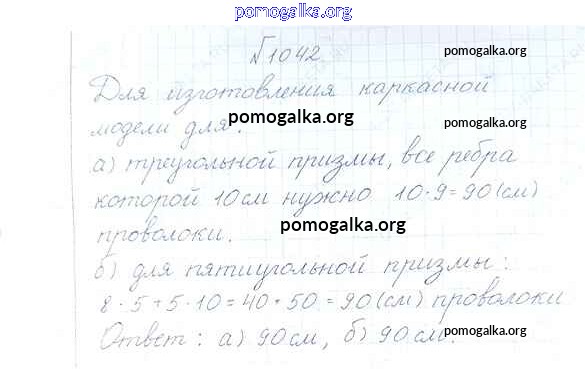 pomogalka.org
№1042
pomogalka.org
Для изготовления каркасной
модели для:
pomogalka.org
pomogalka.org
а) треугольной призмы, все ребра
которой 10 см нужно 10·9=90(см)
pomogalka.org
проволоки.
б) для пятиугольной призмы:
8·5+5·10=40+50=90(см) проволоки
pomogalka.org
Ответ: а) 90 см, б) 90 см.
pomogalka.org